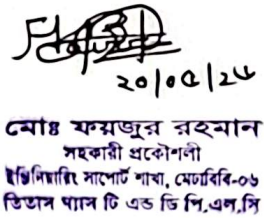 ২০/০৫/২৫
মোঃ ফয়জুর রহমান
সহকারী প্রকৌশলী
ইঞ্জিনিয়ারিং সাপোর্ট শাখা, মেঢাবিবি-০৬
তিতাস গ্যাস টি এন্ড ডি পি.এল.সি